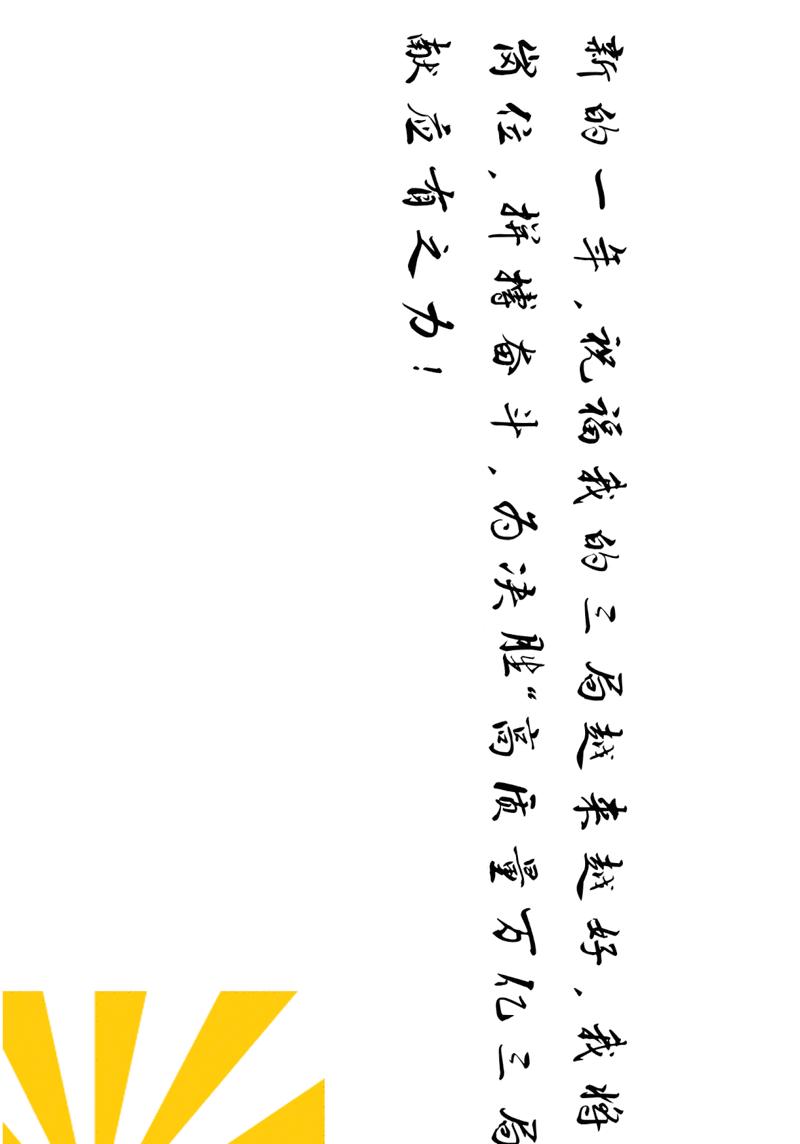 新的一年，祝福我的三局越来越好，我将
岗位，拼搏奋斗，为决胜“高质量万亿三局
献应有之力！